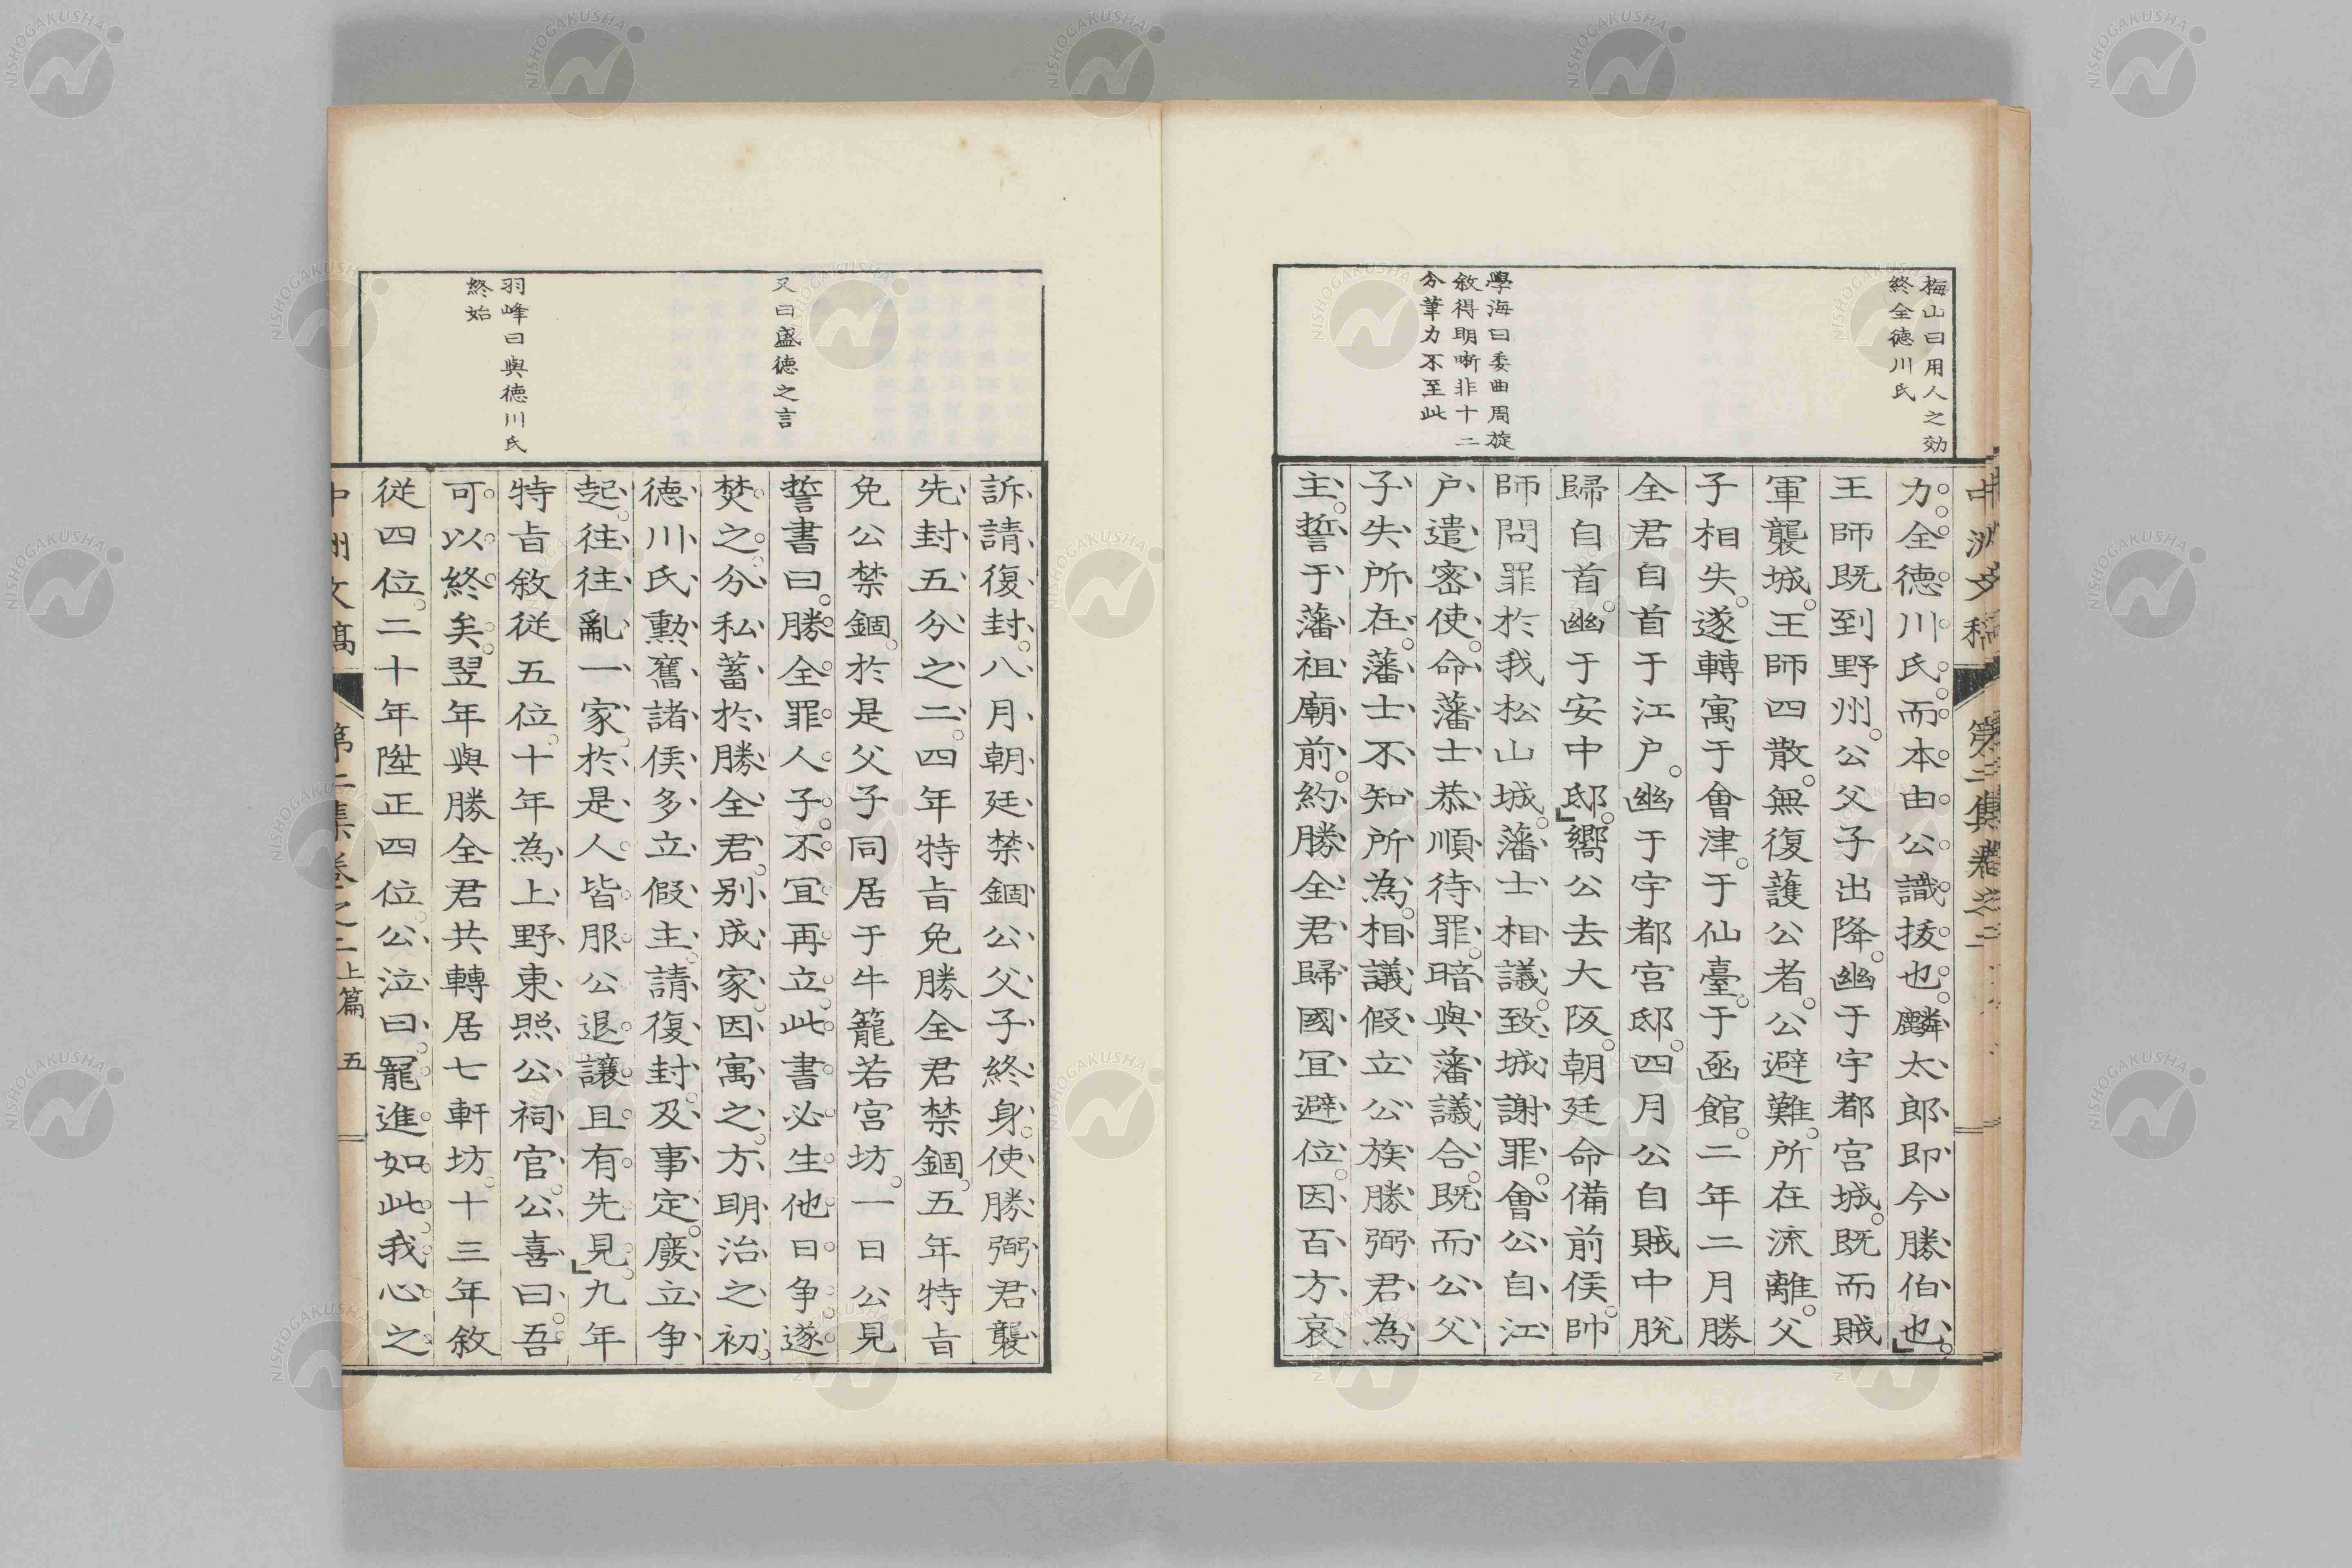 梅山曰用人之効
終全德川氏
學海曰委曲周旋
敘得明晰非十二
分筆力不至此
力全德川氏而本由公識拔也麟太郎即今勝伯也
王師既到野州公父子出降幽于宇都宮城既而賊
軍襲城王師四散無復護公者公避難所在流離父
子相失遂轉寓于會津于仙臺于凾館二年二月勝
全君自首于江戶幽于宇都宮邸四月公自賊中脫
歸自首幽于安中邸嚮公去大阪朝廷命備前侯帥
師問罪於我松山城藩士相議致城謝罪會公自江
戶遣密使命藩士恭順待罪暗與藩議合既而公父
子失所在藩士不知所為相議假立公族勝弼君為
主誓于藩祖廟前約勝全君歸國宜避位因百方哀
又曰盛德之言
羽峰曰與德川氏
終始
訴請復封八月朝廷禁錮公父子終身使勝弼君襲
先封五分之二四年特旨免勝全君禁錮五年特旨
免公禁錮於是父子同居于牛籠若宮坊一日公見
誓書曰勝全罪人子不宜再立此書必生他日爭遂
焚之分私蓄於勝全君別成家因寓之方明治之初
德川氏勳舊諸侯多立假主請復封及事定廢立爭
起往往亂一家於是人皆服公退讓且有先見九年
特旨敘從五位十年為上野東照公祠官公喜曰吾
可以終矣翌年與勝全君共轉居七軒坊十三年敘
從四位二十年陞正四位公泣曰寵進如此我心之
中洲文稿 第二集卷之二上篇 五